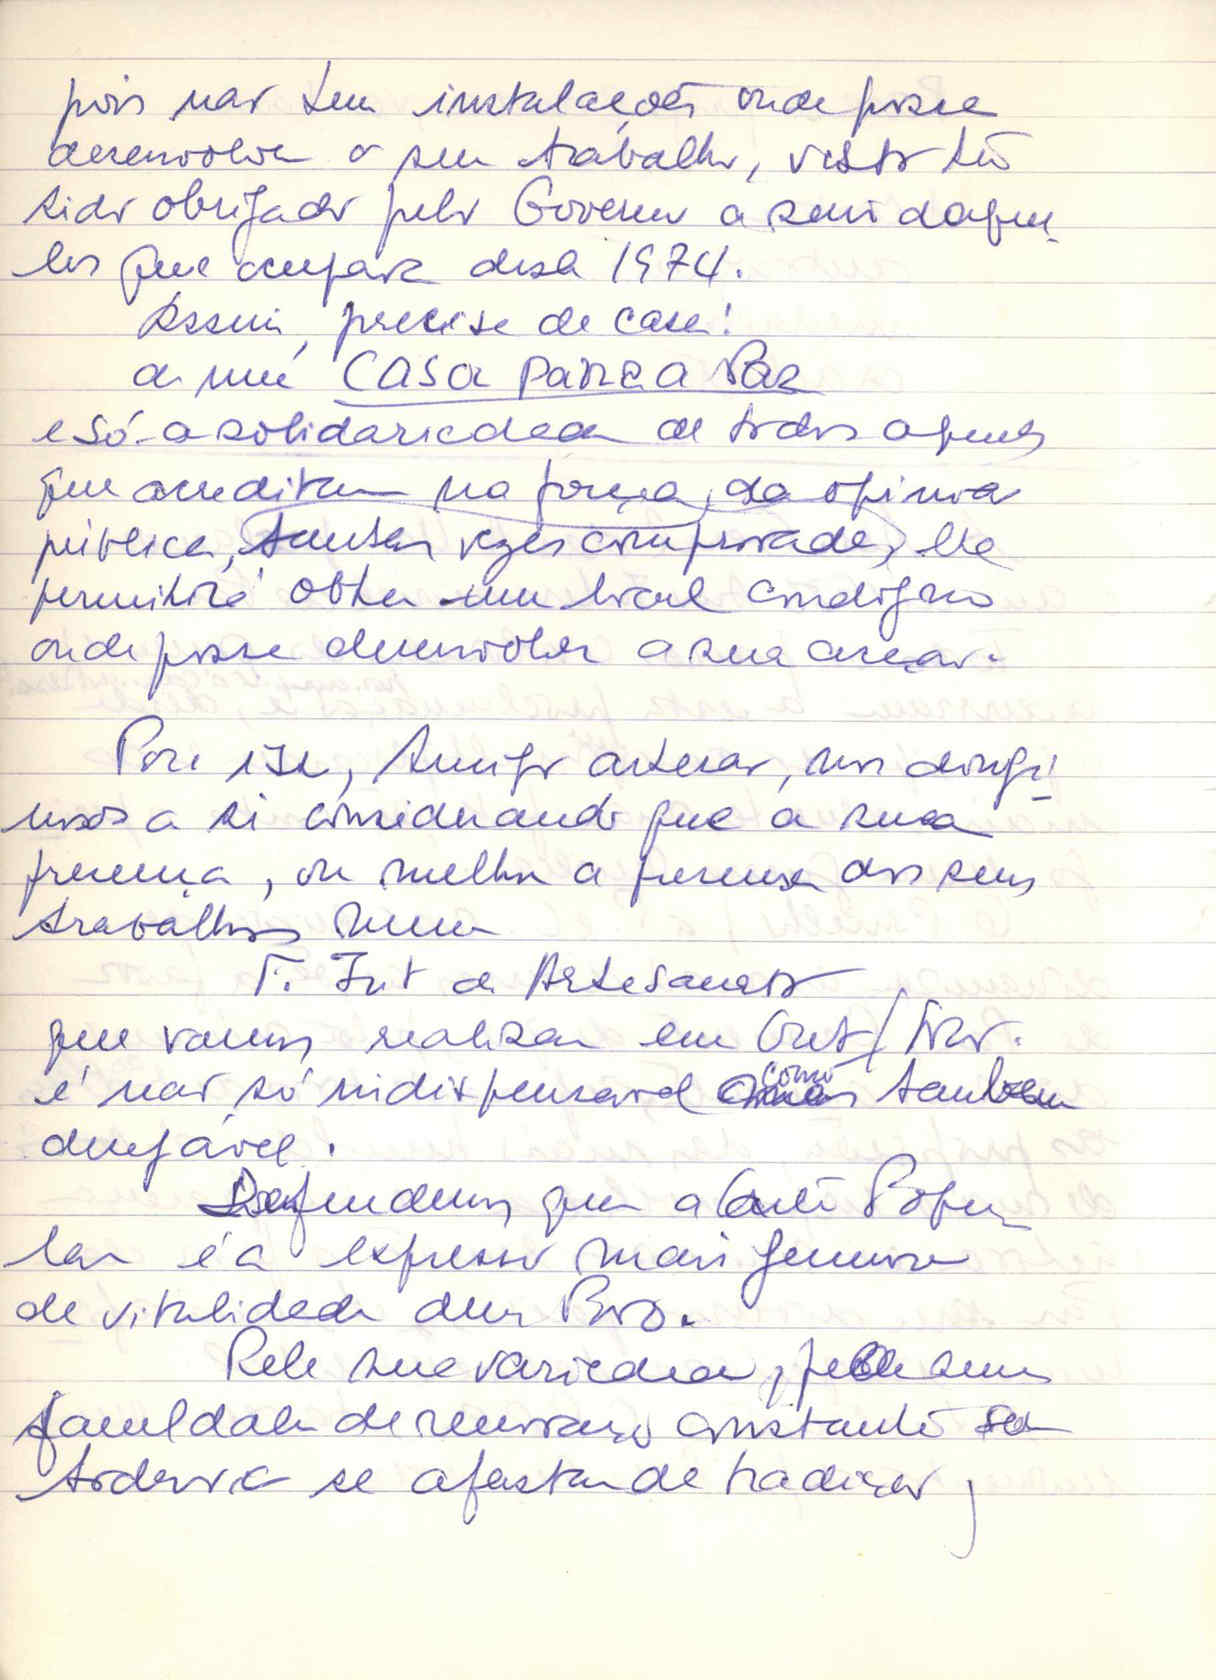 pois não tem instalações onde possa
desenvolver o seu trabalho, visto ter
sido obrigado pelo Governo a sair daque-
les que ocupava desde 1974.
Assim, precisa de casa!
de uma CASA PARA A PAZ
e só a solidariedade de todos aqueles
que acreditam na força da opinião
pública, tantas vezes comprovada, lhe
permitirá obter um local condigno
onde possa desenvolver a sua acção.
Por isso, Amigo artesão, nos dirigi-
mos a si considerando que a sua
presença, ou melhor a presença dos seus
trabalhos numa
F. Int de Artesanato
que vamos realizar em Out/Nov.
é não só indispensável como também
desejável.
Defendemos que a Arte Popu
lar é a expressão mais genuina
de vitalidade dum Povo.
Pela sua variedade, pela sua
faculdade de renovação constante sem
todavia se afastar de tradição,